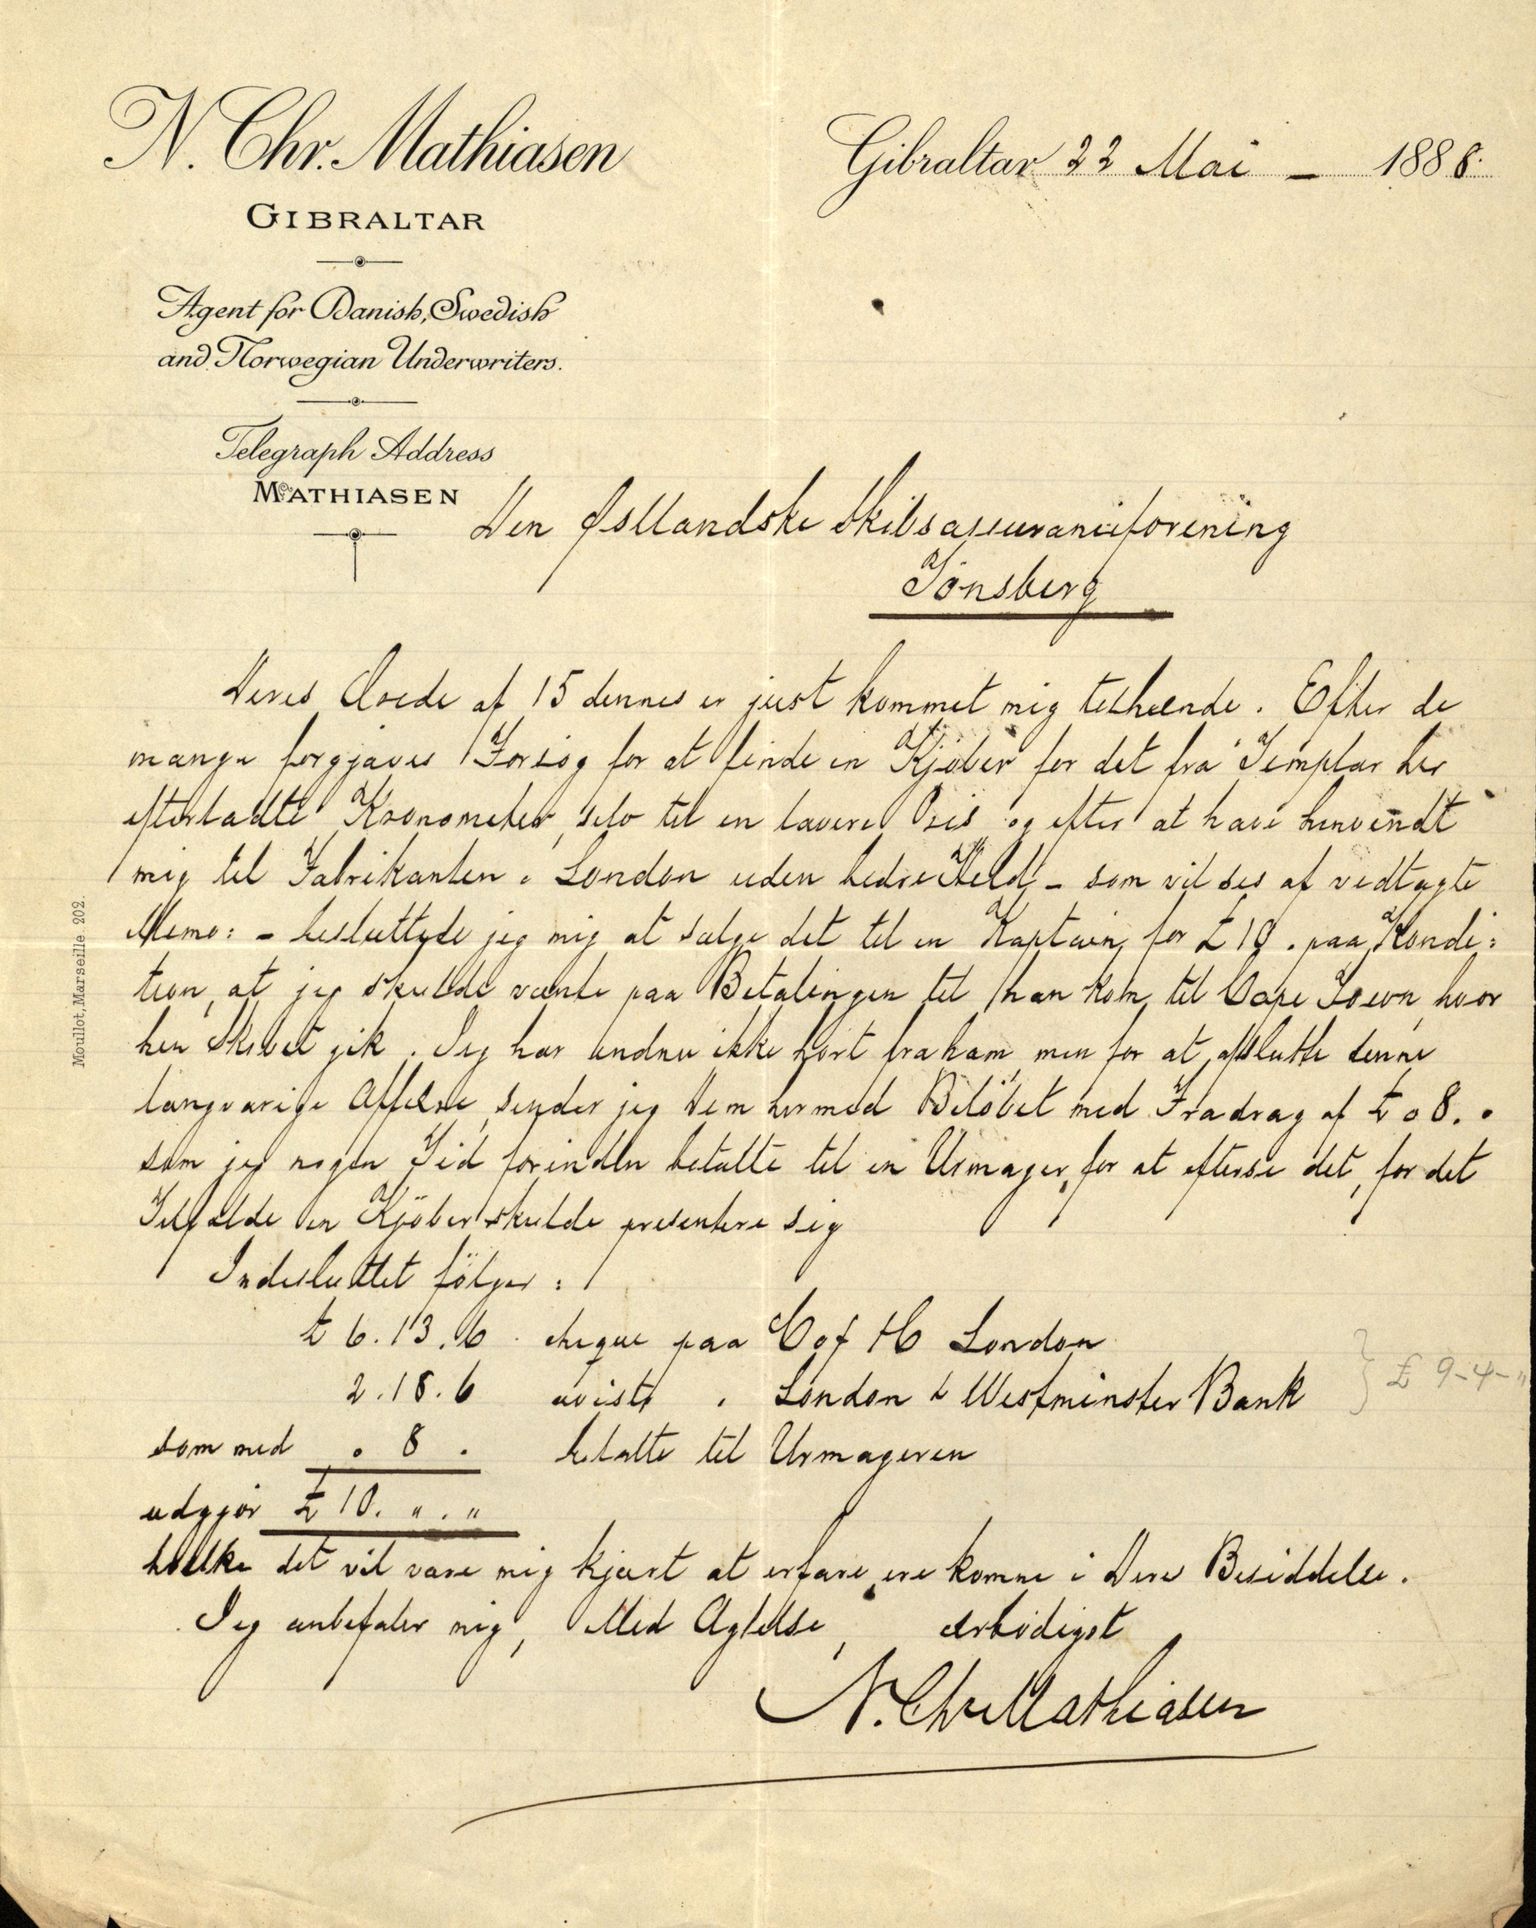 N. Chr. Mathiasen
GIBRALTAR
Agent for Danish, Swedish
and Norwegian Underwriters.
Telegraph Address
MATHIASEN
Gibraltar 22 Mai - 1888.
Den Østlandske Skibsassuranceforening
Tönsberg
Deres Ærede af 15 dennes er just kommet mig tilhænde. Efter de
mange forgjæves Forsög for at finde en Kjöber for det fra Templar her
efterladte Kronometer, selv til en lavere Pris og efter at have henvendt
mig til Fabrikanten i London uden bedre Held, - som vil sees af vedlagte
Memo: - besluttede jeg mig at sælge det til en Kaptain for £10. paa Kondi:
tion, at jeg skulde vente paa Betalingen til han kom til Cape Town, hvor
hen Skibet gik. Jeg har endnu ikke hört fra ham, men for at afslutte denne
langvarige Affære, sender jeg Dem hermed Belöbet med Fradrag af £ o 8. o
som jeg nogen Tid forinden betalte til en Urmager, for at efterse det, for det
Tilfælde en Kjöber skulde presentere sig
Indesluttet fölger:
£ 6.13.6 cheque paa C of H London
2.18.6 avista " London & Westminster Bank
} £ 9-4-"
som med o 8 . betalte til Urmageren
udgjør £ 10. " . "
hvilke det vil være mig kjært at erfare, ere komne i Deres Besiddelse.
Jeg anbefaler mig, Med Agtelse, ærbödigst
N. Chr Mathiasen
Moullot, Marseille 202.